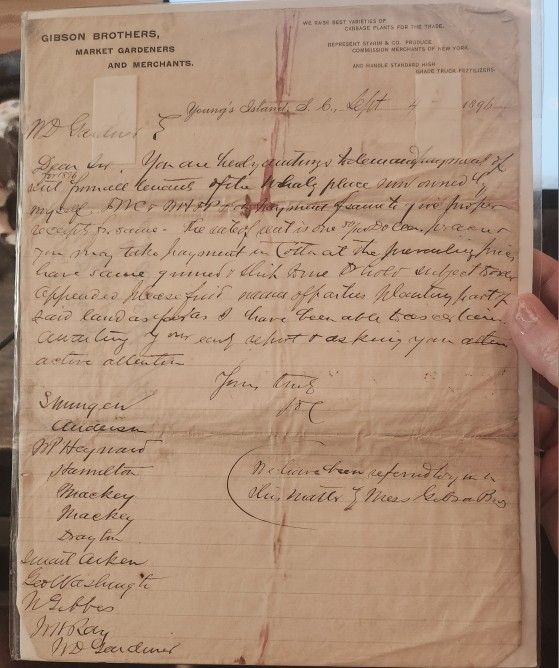 GIBSON BROTHERS,
MARKET GARDENERS
AND MERCHANTS.
WE RAISE BEST VARIETIES OF
CABBAGE PLANTS FOR THE TRADE.
REPRESENT STAHN & CO. PRODUCE
COMMISSION MERCHANTS OF NEW YORK.
AND HANDLE STANDARD HIGH
GRADE TRUCK FERTILIZERS.
Young's Island, S. C., Sept 4 1896
W D Gardner
Dear Sir. You are hereby to demand payment of
for 1896
rent from all tenants of the Whaley place now owned by
myself, & payment of same to give proper
receipts for same. the rate of rent is one
you may take payment in Cotton at the prevailing price
have same ginned & hold subject
appended please find names of parties planting part of
said land as far as I have been able to ascertain
awaiting your early report & asking your
active attention
Yours truly
Smungen
Anderson
W P Heyward
Hamilton
Mackey
Mackey
Drayton
Smart Aiken
Geo Washington
N Gibbes
W H Ray
W D Gardiner
We have been referred by in
this matter Mess Gibson Bros